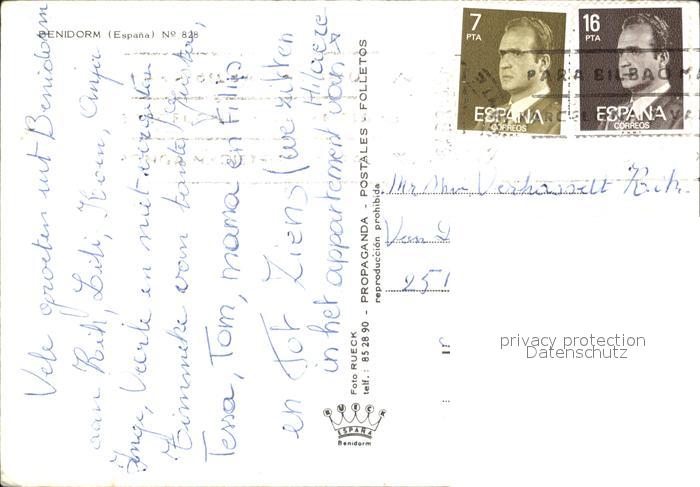 BENIDORM (España) Nº 828
Vele groeten uit Benidorm
aan Rik, Lidi, Koen, Anja
Inge, Veerle en niet vergeten
Timmeke van tante
Tessa, Tom, mama en Filip
en Tot Ziens (we zitten
in het appartement van
Hilaere
Foto RUECK - PROPAGANDA - POSTALES - FOLLETOS
telf.: 85 28 90 - reproducción prohibida
RUECK
ESPAÑA
Benidorm
7
PTA
ESPAÑA
CORREOS
16
PTA
ESPAÑA
CORREOS
PARA BILBAO
Mr Mme Verhasselt Rik.
Van D
251
privacy protection
Datenschutz